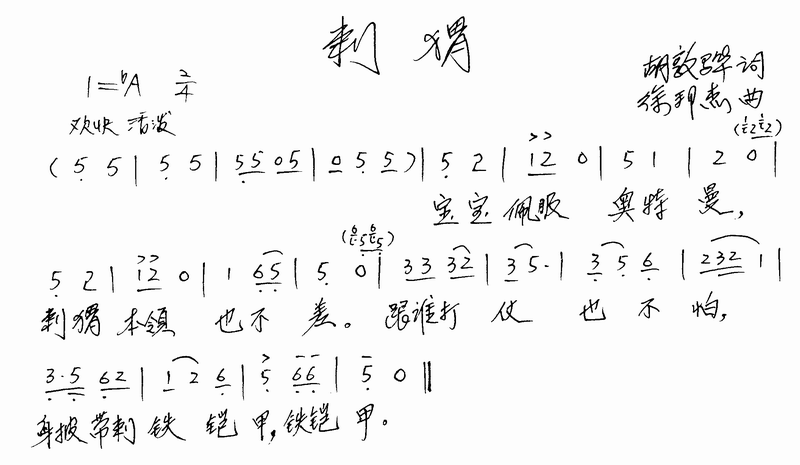 刺猬
1=♭A 2/4
胡敦骅 词
欢快 活泼
徐邦杰 曲
( 5 5 | 5 5 | 5 5 0 5 | 0 5 5 ) | 5 2 | 12 0 | 5 1 | 2 0 |
宝宝 佩服 奥特 曼,
5 2 | 12 0 | 1 65 | 5 0 | 33 32 | 35· | 3 5 6 | 232 1 |
刺猬 本领 也不 差。 跟谁打 仗 也 不 怕,
3·5 62 | 1 2 6 | 5 66 | 5 0 ‖
身披带刺 铁 铠 甲,铁铠 甲。